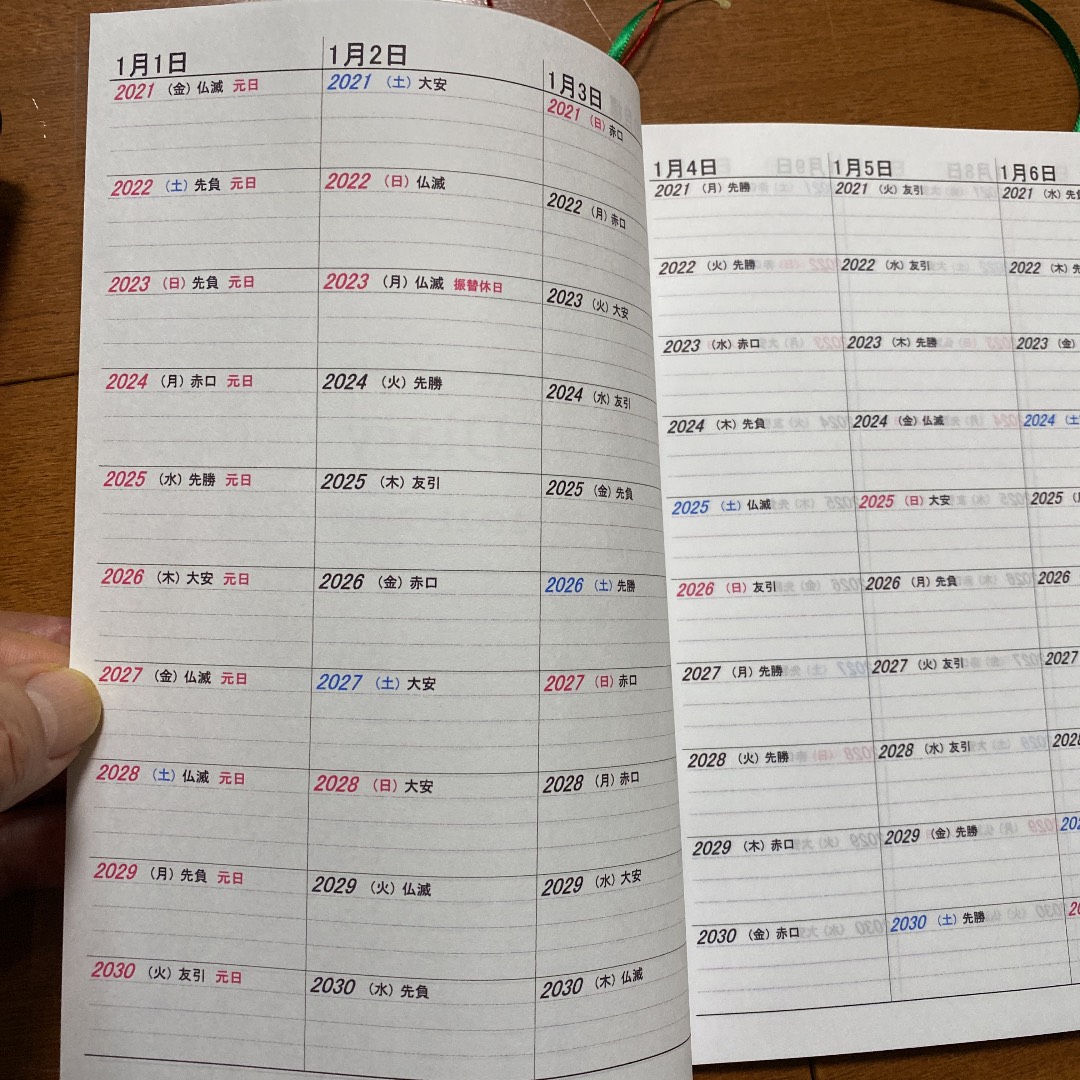 1月1日
2021 (金) 仏滅 元日
2022 (土) 先負 元日
2023 (日) 先負 元日
2024 (月) 赤口 元日
2025 (水) 先勝 元日
2026 (木) 大安 元日
2027 (金) 仏滅 元日
2028 (土) 仏滅 元日
2029 (月) 先負 元日
2030 (火) 友引 元日
1月2日
2021 (土) 大安
2022 (日) 仏滅
2023 (月) 仏滅 振替休日
2024 (火) 先勝
2025 (木) 友引
2026 (金) 赤口
2027 (土) 大安
2028 (日) 大安
2029 (火) 仏滅
2030 (水) 先負
1月3日
2021 (日) 赤口
2022 (月) 赤口
2023 (火) 大安
2024 (水) 友引
2025 (金) 先負
2026 (土) 先勝
2027 (日) 赤口
2028 (月) 赤口
2029 (水) 大安
2030 (木) 仏滅
1月4日
2021 (月) 先勝
2022 (火) 先勝
2023 (水) 赤口
2024 (木) 先負
2025 (土) 仏滅
2026 (日) 友引
2027 (月) 先勝
2028 (火) 先勝
2029 (木) 赤口
2030 (金) 赤口
1月5日
2021 (火) 友引
2022 (水) 友引
2023 (木) 先勝
2024 (金) 仏滅
2025 (日) 大安
2026 (月) 先負
2027 (火) 友引
2028 (水) 友引
2029 (金) 先勝
2030 (土) 先勝
1月6日
2021 (水)
2022 (木)
2023 (金)
2024 (土
2025
2026
2027